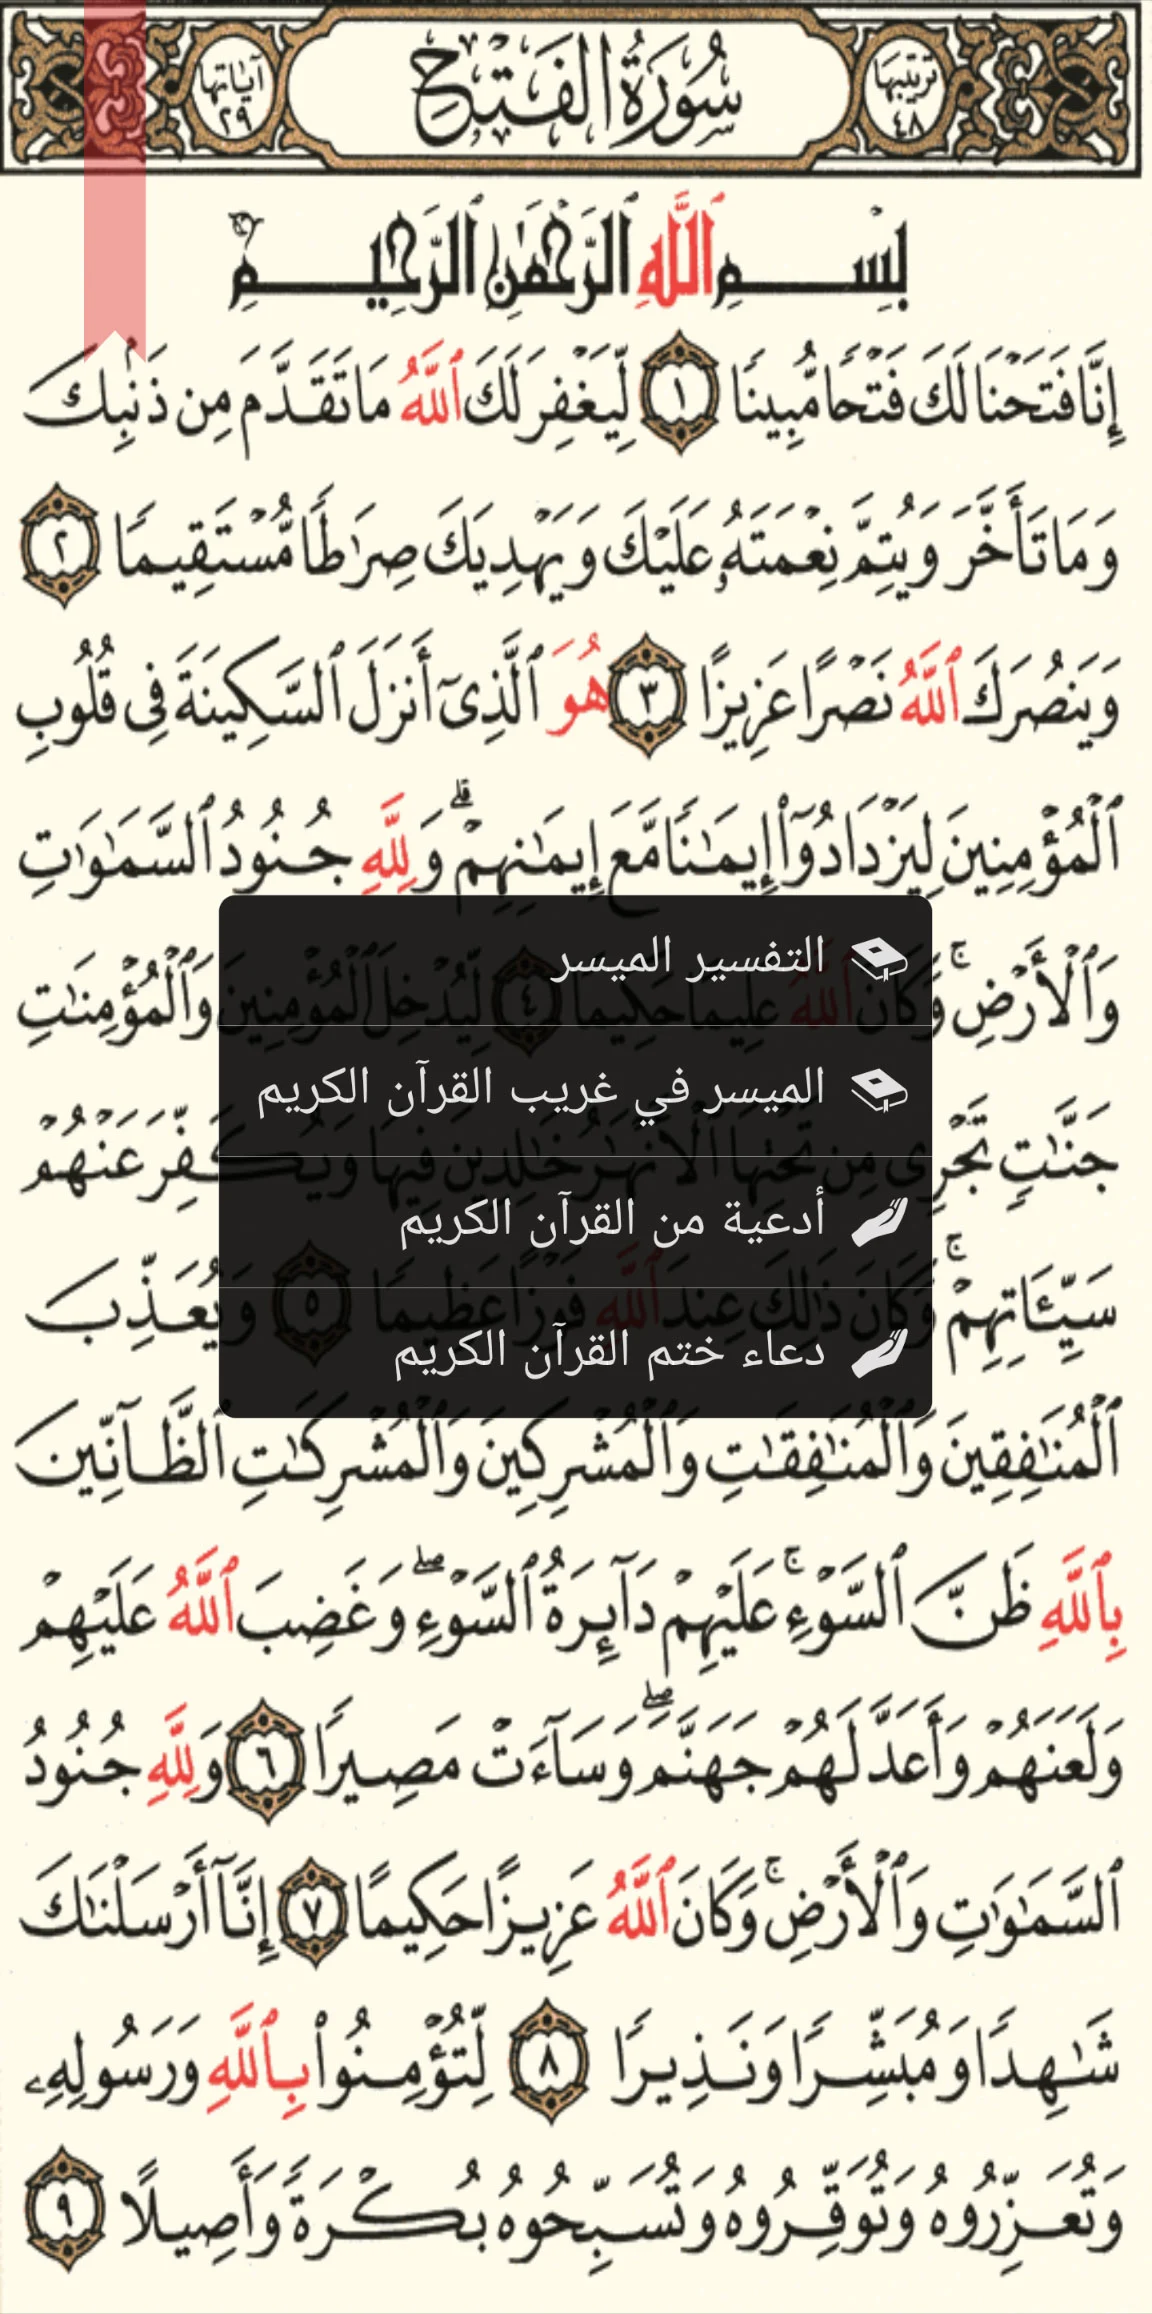 سُورَةُ الفَتْحِ
ترتيبها ٤٨
آياتها ٢٩
بِسْمِ ٱللَّهِ ٱلرَّحْمَٰنِ ٱلرَّحِيمِ
إِنَّا فَتَحْنَا لَكَ فَتْحًا مُّبِينًا ١ لِّيَغْفِرَ لَكَ ٱللَّهُ مَا تَقَدَّمَ مِن ذَنۢبِكَ
وَمَا تَأَخَّرَ وَيُتِمَّ نِعْمَتَهُۥ عَلَيْكَ وَيَهْدِيَكَ صِرَٰطًا مُّسْتَقِيمًا ٢
وَيَنصُرَكَ ٱللَّهُ نَصْرًا عَزِيزًا ٣ هُوَ ٱلَّذِىٓ أَنزَلَ ٱلسَّكِينَةَ فِى قُلُوبِ
ٱلْمُؤْمِنِينَ لِيَزْدَادُوٓا۟ إِيمَٰنًا مَّعَ إِيمَٰنِهِمْ ۗ وَلِلَّهِ جُنُودُ ٱلسَّمَٰوَٰتِ
وَٱلْأَرْضِ ۚ وَكَانَ ٱللَّهُ عَلِيمًا حَكِيمًا ٤ لِّيُدْخِلَ ٱلْمُؤْمِنِينَ وَٱلْمُؤْمِنَٰتِ
جَنَّٰتٍ تَجْرِى مِن تَحْتِهَا ٱلْأَنْهَٰرُ خَٰلِدِينَ فِيهَا وَيُكَفِّرَ عَنْهُمْ
سَيِّـَٔاتِهِمْ ۚ وَكَانَ ذَٰلِكَ عِندَ ٱللَّهِ فَوْزًا عَظِيمًا ٥ وَيُعَذِّبَ
التفسير الميسر
الميسر في غريب القرآن الكريم
أدعية من القرآن الكريم
دعاء ختم القرآن الكريم
ٱلْمُنَٰفِقِينَ وَٱلْمُنَٰفِقَٰتِ وَٱلْمُشْرِكِينَ وَٱلْمُشْرِكَٰتِ ٱلظَّآنِّينَ
بِٱللَّهِ ظَنَّ ٱلسَّوْءِ ۚ عَلَيْهِمْ دَآئِرَةُ ٱلسَّوْءِ ۖ وَغَضِبَ ٱللَّهُ عَلَيْهِمْ
وَلَعَنَهُمْ وَأَعَدَّ لَهُمْ جَهَنَّمَ ۖ وَسَآءَتْ مَصِيرًا ٦ وَلِلَّهِ جُنُودُ
ٱلسَّمَٰوَٰتِ وَٱلْأَرْضِ ۚ وَكَانَ ٱللَّهُ عَزِيزًا حَكِيمًا ٧ إِنَّآ أَرْسَلْنَٰكَ
شَٰهِدًا وَمُبَشِّرًا وَنَذِيرًا ٨ لِّتُؤْمِنُوا۟ بِٱللَّهِ وَرَسُولِهِۦ
وَتُعَزِّرُوهُ وَتُوَقِّرُوهُ وَتُسَبِّحُوهُ بُكْرَةً وَأَصِيلًا ٩